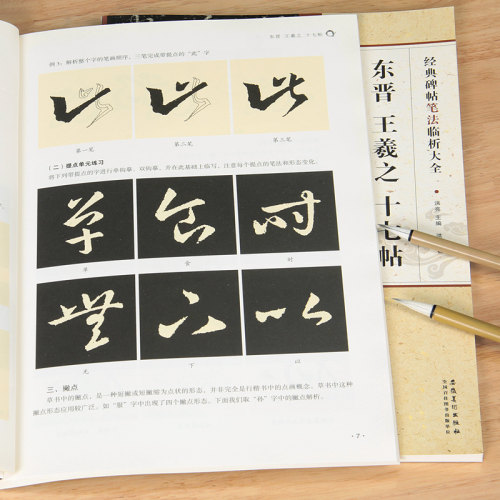 东晋 王羲之 十七帖
例1：解析整个字的笔画顺序，三笔完成带提点的“此”字
第一笔
第二笔
第三笔
（二）提点单元练习
将下列带提点的字进行单钩摹、双钩摹，并在此基础上临写，注意每个提点的笔法和形态变化。
草
食
时
无
下
以
三、撇点
草书中的撇点，是一种短撇或短撇缩为点状的形态，并非完全是行楷书中的点画概念，草书中这种
撇点形态应用较广泛。如“服”字中出现了四个撇点形态。下面我们取“孙”字中的撇点解析。
·7·
经典碑帖笔法临析大全
东晋 王羲之 十七帖
主编
安徽美术出版社
全国百佳图书出版单位